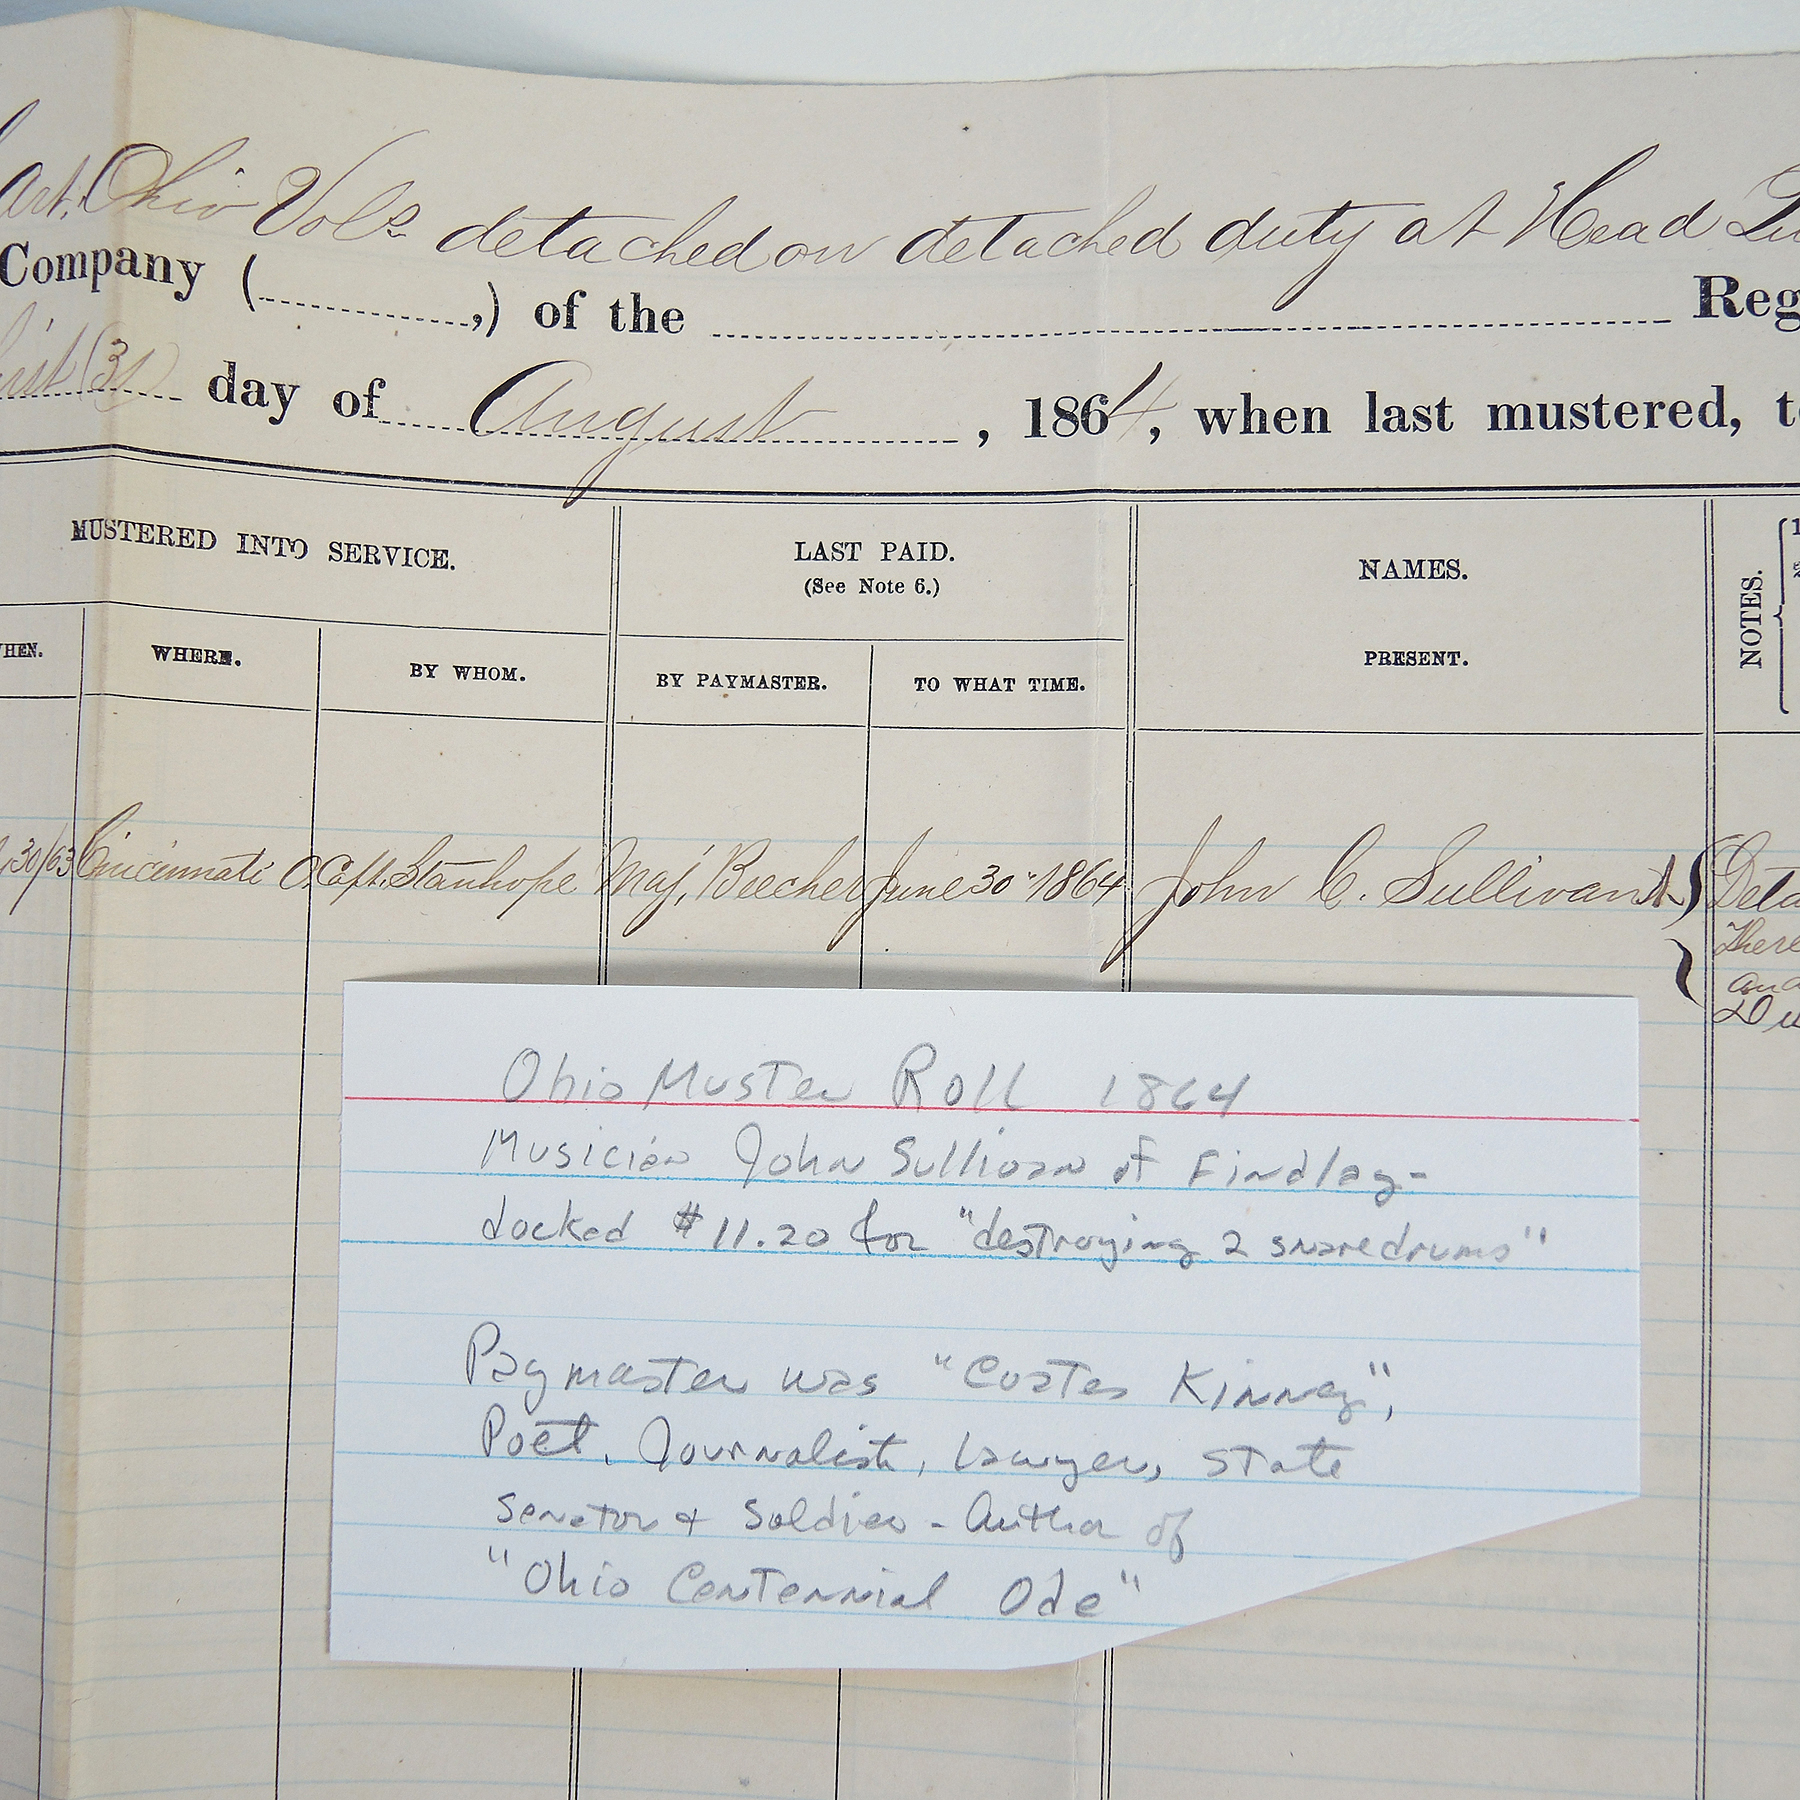 Art. Ohio Vols detached on detached duty at Head
Company (..........,) of the .......... Reg
(31) day of August, 1864, when last mustered, to
MUSTERED INTO SERVICE.
LAST PAID.
(See Note 6.)
NAMES.
PRESENT.
NOTES.
WHEN.
WHERE.
BY WHOM.
BY PAYMASTER.
TO WHAT TIME.
30/63 Cincinnati O. Capt. Stanhope Maj. Beecher June 30" 1864 John C. Sullivan
Deta
There
and
Ohio Muster Roll 1864
Musician John Sullivan of Findlay-
docked $11.20 for "destroying 2 snaredrums"
Paymaster was "Coates Kinney",
Poet, Journalist, Lawyer, State
Senator & Soldier - Author of
"Ohio Centennial Ode"